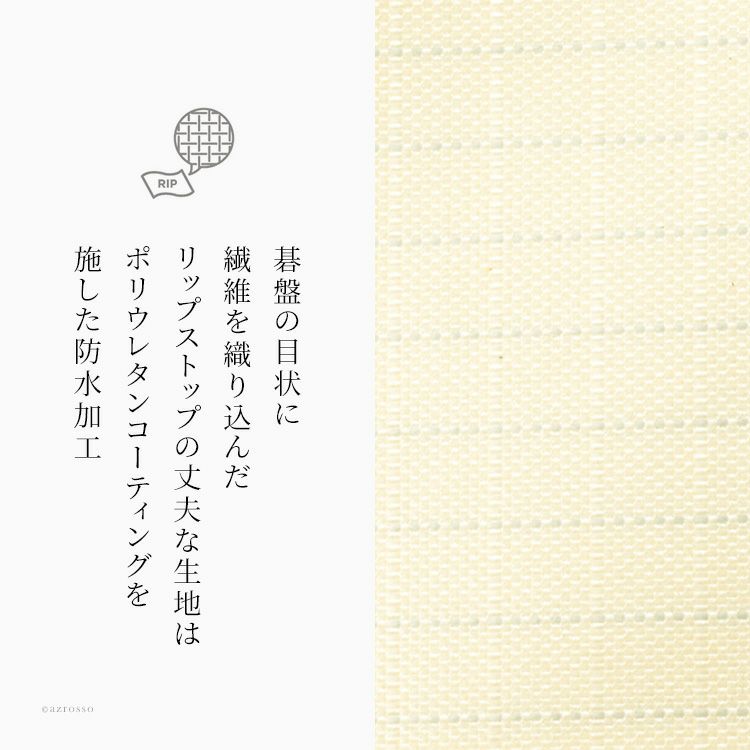 RIP
碁盤の目状に
繊維を織り込んだ
リップストップの丈夫な生地は
ポリウレタンコーティングを
施した防水加工
©azrosso